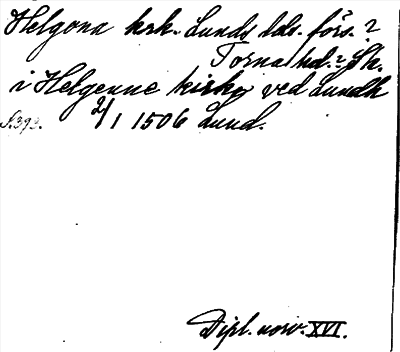 Helgona krk. Lunds dds. förs.?
Torna hd.? Sk.
i Helgenne kirke ved Lundh
S.393. 2/1 1506 Lund.
Dipl. norv. XVI.